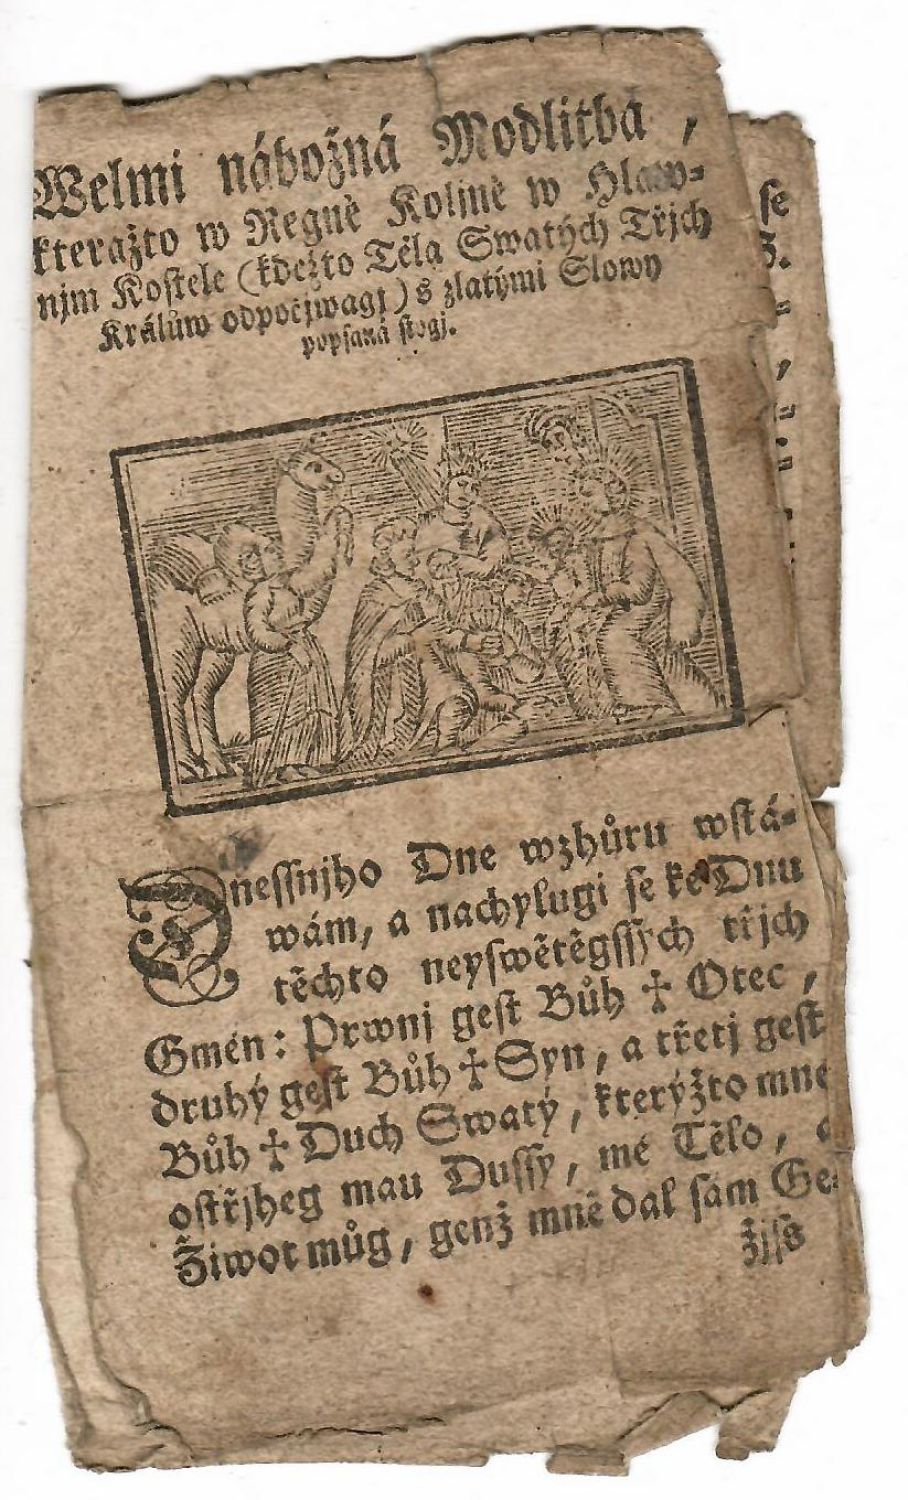 Welmi nábožná Modlitba,
kteražto w Regně Koljně w Hlaw-
njm Kostele (kdežto Těla Swatých Třjch
Králůw odpočjwagj) s zlatými Slowy
popsaná stogj.
Dnessnjho Dne wzhůru wstá-
wám, a nachylugi se ke Dnu
těchto neyswětěgssých třjch
Gmén: Prwnj gest Bůh ✝ Otec,
druhý gest Bůh ✝ Syn, a třetj gest
Bůh ✝ Duch Swatý, kterýžto mne
ostřjheg mau Dussy, mé Tělo, a
Žiwot můg, genž mně dal sám Ge-
žjss
se